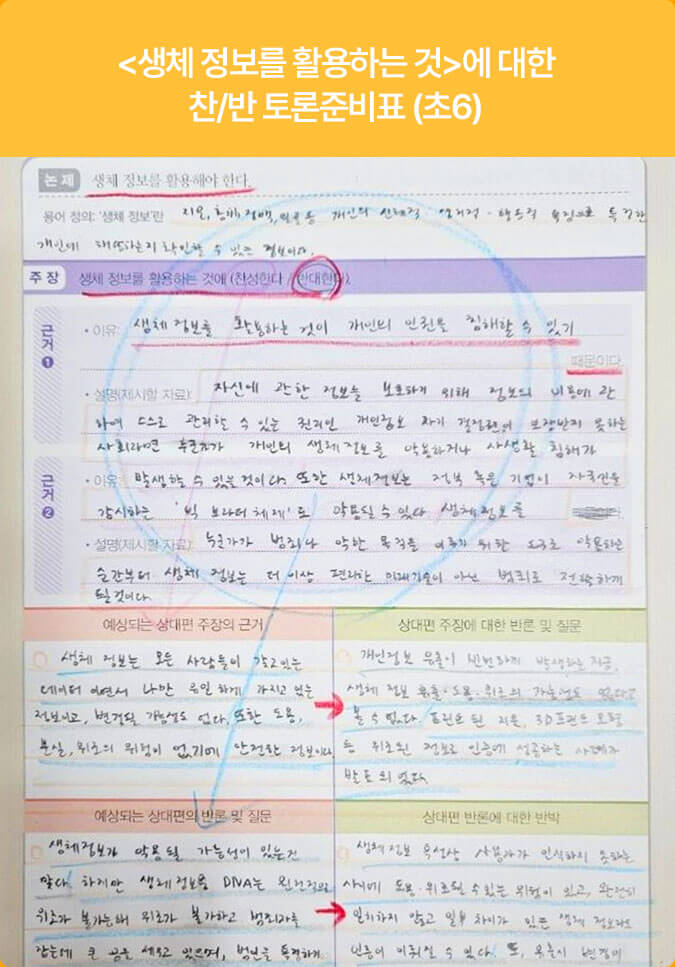 <생체 정보를 활용하는 것>에 대한
찬/반 토론준비표 (초6)
논 제 생체 정보를 활용해야 한다.
용어 정의: '생체 정보'란 지문, 홍채, 정맥, 얼굴 등 개인의 신체적·생리적·행동적 특징으로 특정한
개인에 해당하는지 확인할 수 있는 정보이다.
주 장 생체 정보를 활용하는 것에 (찬성한다 / 반대한다).
근거 1
• 이유: 생체 정보를 활용하는 것이 개인의 인권을 침해할 수 있기
때문이다.
• 설명(제시할 자료): 자신에 관한 정보를 보호하기 위해 정보의 비용에 관
하여 스스로 관리할 수 있는 권리인 개인정보 자기 결정권이 보장받지 못하는
사회라면 누군가가 개인의 생체 정보를 악용하거나 사생활 침해가
근거 2
• 이유: 발생할 수 있을 것이다. 또한 생체정보는 정부 혹은 기업이 자국민을
감시하는 '빅 브라더 체제'로 악용될 수 있다. 생체정보를
• 설명(제시할 자료): 누군가가 범죄나 악한 목적을 이루기 위한 도구로 악용하는
순간부터 생체 정보는 더 이상 편리한 미래기술이 아닌 범죄로 전락하게
될 것이다.
예상되는 상대편 주장의 근거
생체 정보는 모든 사람들이 갖고 있는
데이터 이면서 나만 유일하게 가지고 있는
정보이고, 변경될 가능성도 없다. 또한 도용,
분실, 위조의 위험이 없기에 안전한 정보이다.
상대편 주장에 대한 반론 및 질문
개인정보 유출이 빈번하게 발생하는 지금,
생체 정보 유출·도용·위조의 가능성도 없다고
볼 수 없다. 프린트 된 지문, 3D프린트 모형
등 위조된 정보로 인증에 성공하는 사례가
발표 되었다.
예상되는 상대편의 반론 및 질문
생체정보가 악용될 가능성이 있는건
맞다. 하지만 생체 정보중 DNA는 완전적인
위조가 불가능해 위조가 불가하고 범죄자를
잡는데 큰 공을 세우고 있으며, 범인을 특정하기
상대편 반론에 대한 반박
생체 정보 특성상 사용자가 인식하지 못하는
사이에 도용·위조될 수 있는 위험이 있고, 완전히
일치하지 않고 일부 차이가 있는 생체 정보라도
인증이 이뤄질 수 있다. 또, 유출시 변경이